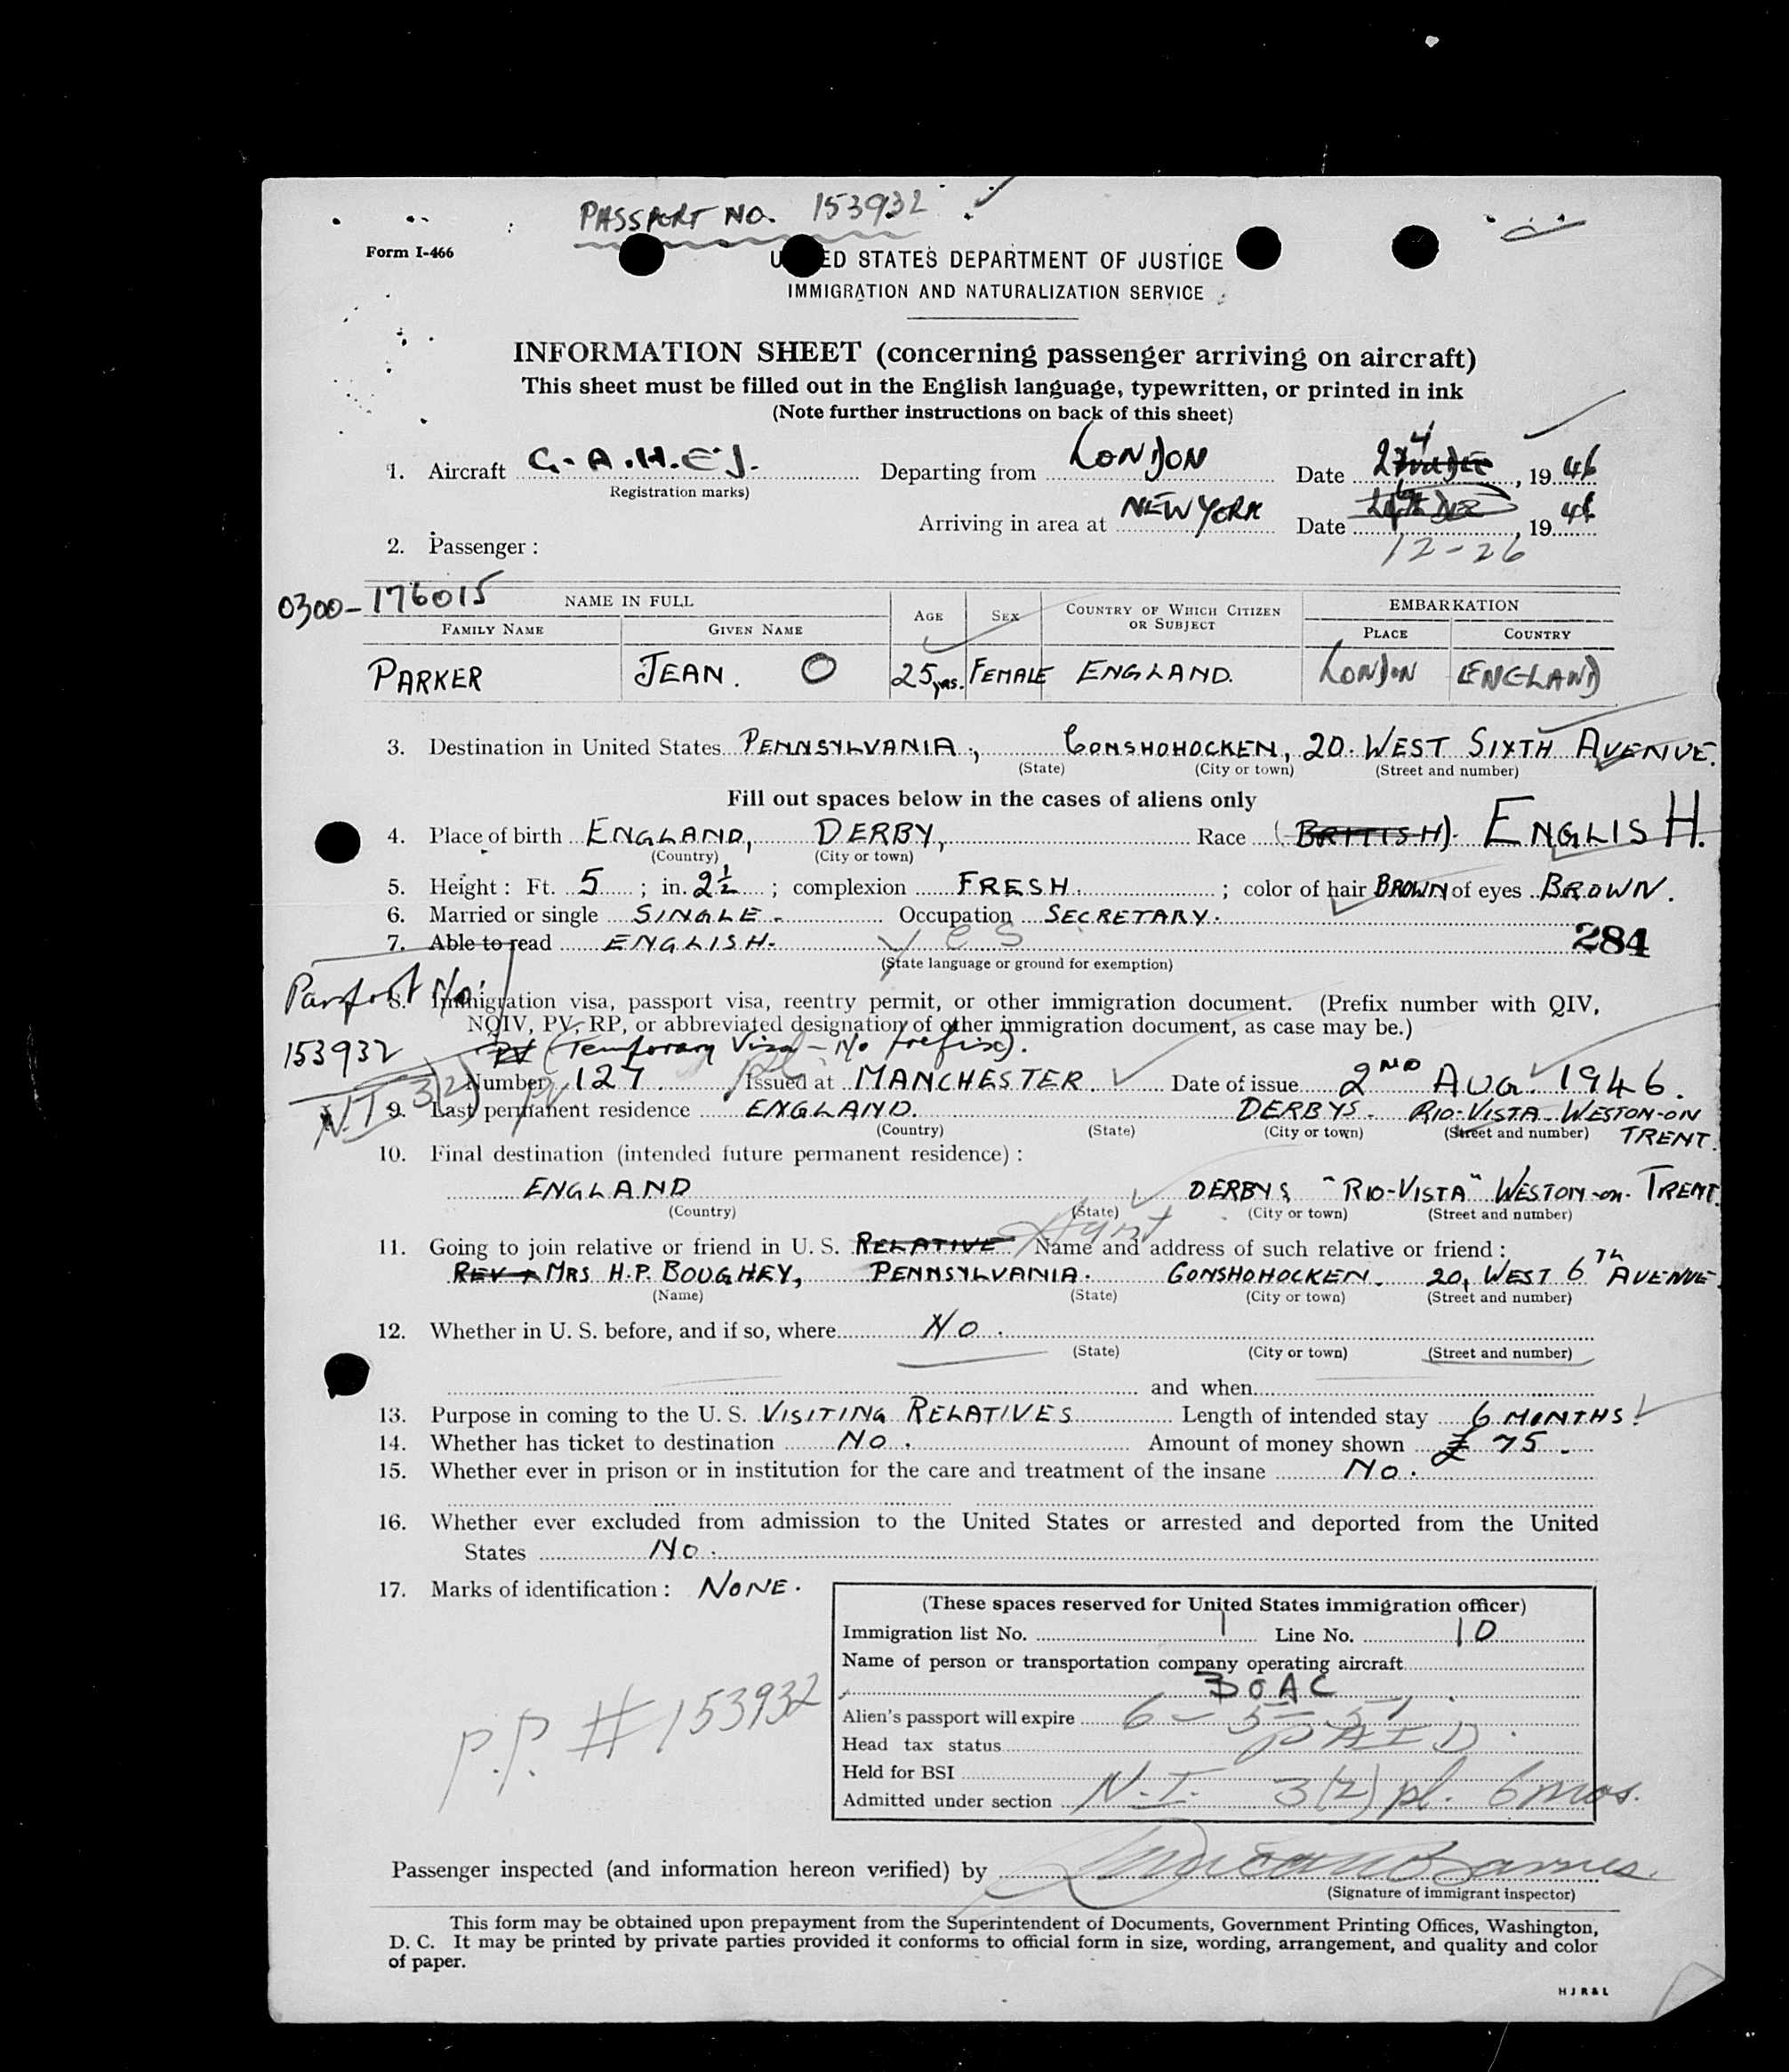 PASSPORT NO. 153932
Form I-466
UNITED STATES DEPARTMENT OF JUSTICE
IMMIGRATION AND NATURALIZATION SERVICE
INFORMATION SHEET (concerning passenger arriving on aircraft)
This sheet must be filled out in the English language, typewritten, or printed in ink
(Note further instructions on back of this sheet)
1. Aircraft G.A.H.E.J. Departing from LONDON Date , 1946
(Registration marks)
Arriving in area at NEW YORK Date , 1946
12-26
2. Passenger :
0300-176015
NAME IN FULL AGE SEX COUNTRY OF WHICH CITIZEN OR SUBJECT EMBARKATION
FAMILY NAME GIVEN NAME PLACE COUNTRY
PARKER JEAN. O 25 yrs. FEMALE ENGLAND. LONDON ENGLAND
3. Destination in United States PENNSYLVANIA, CONSHOHOCKEN, 20. WEST SIXTH AVENUE.
(State) (City or town) (Street and number)
Fill out spaces below in the cases of aliens only
4. Place of birth ENGLAND, DERBY, Race (BRITISH). ENGLISH.
(Country) (City or town)
5. Height : Ft. 5 ; in. 2½ ; complexion FRESH. ; color of hair BROWN of eyes BROWN.
6. Married or single SINGLE. Occupation SECRETARY.
7. Able to read ENGLISH. Yes 284
(State language or ground for exemption)
Passport No.
8. Immigration visa, passport visa, reentry permit, or other immigration document. (Prefix number with QIV,
NQIV, PV, RP, or abbreviated designation of other immigration document, as case may be.)
153932 PV (Temporary Visa – No prefix).
Number 127 Issued at MANCHESTER. Date of issue 2ND AUG. 1946.
N.I. 3(2) pl
9. Last permanent residence ENGLAND. DERBYS. RIO-VISTA WESTON-ON
TRENT.
(Country) (State) (City or town) (Street and number)
10. Final destination (intended future permanent residence) :
ENGLAND DERBYS "RIO-VISTA" WESTON-on-TRENT
(Country) (State) (City or town) (Street and number)
11. Going to join relative or friend in U. S. RELATIVE Name and address of such relative or friend :
REV + MRS H.P. BOUGHEY, PENNSYLVANIA. CONSHOHOCKEN. 20, WEST 6TH AVENUE
(Name) (State) (City or town) (Street and number)
12. Whether in U. S. before, and if so, where NO.
(State) (City or town) (Street and number)
and when
13. Purpose in coming to the U. S. VISITING RELATIVES Length of intended stay 6 MONTHS.
14. Whether has ticket to destination NO. Amount of money shown £ 75.
15. Whether ever in prison or in institution for the care and treatment of the insane NO.
16. Whether ever excluded from admission to the United States or arrested and deported from the United
States NO.
17. Marks of identification : NONE.
(These spaces reserved for United States immigration officer)
Immigration list No. 1 Line No. 10
Name of person or transportation company operating aircraft
BOAC
P.P. # 153932
Alien's passport will expire 6-5-51
Head tax status PAID.
Held for BSI
Admitted under section N.I. 3(2) pl. 6 mos.
Passenger inspected (and information hereon verified) by
(Signature of immigrant inspector)
This form may be obtained upon prepayment from the Superintendent of Documents, Government Printing Offices, Washington,
D. C. It may be printed by private parties provided it conforms to official form in size, wording, arrangement, and quality and color
of paper.
H J R & L